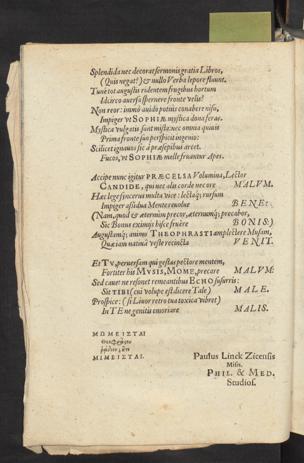 Splendida nec decorat sermonis gratia Libros,
(Quis negat?) & nullo Verba lepore fluunt.
Tunè tot angustis ridentem frugibus hortum
Idcirco aversa spernere fronte velis?
Non reor: immò avido potius conabere nisu,
Impiger ut SOPHIÆ mystica dona feras.
Mystica vulgatis sunt mista: nec omnia quavis
Prima fronte suo perspicit ingenio:
Scilicet ignavos sic à præsepibus arcet
Fucos, ut SOPHIÆ melle fruantur Apes.
Accipe nunc igitur PRÆCELSA Volumina, Lector
CANDIDE, qui nec alis corde necare MALVM.
Hæc lege sincerus multa vice: lectaq; rursum
Impiger assidua Mente revolve BENE:
(Nam, quod & æternùm precor, æternumq; precabor,
Sic Bonus eximiis hisce fruêre BONIS:)
Augustamq; animo THEOPHRASTI amplectere Musam,
Quæ iam nativâ veste revincta VENIT.
Et TV, perversam qui gestas pectore mentem,
Fortiter his MVSIS, MOME, precare MALVM:
Sed cave ne resonet remeantibus ECHO susurris:
Sit TIBI (cui volupe est dicere Tale) MALE.
Prospice: (si Livor retro tua toxica vibret)
In TE ne genitis emoriare MALIS.
ΜΩΜΕΙΣΤΑΙ
ΜΙΜΕΙΣΤΑΙ.
Paulus Linck Zicensis
Misn.
PHIL. & MED.
Studios.